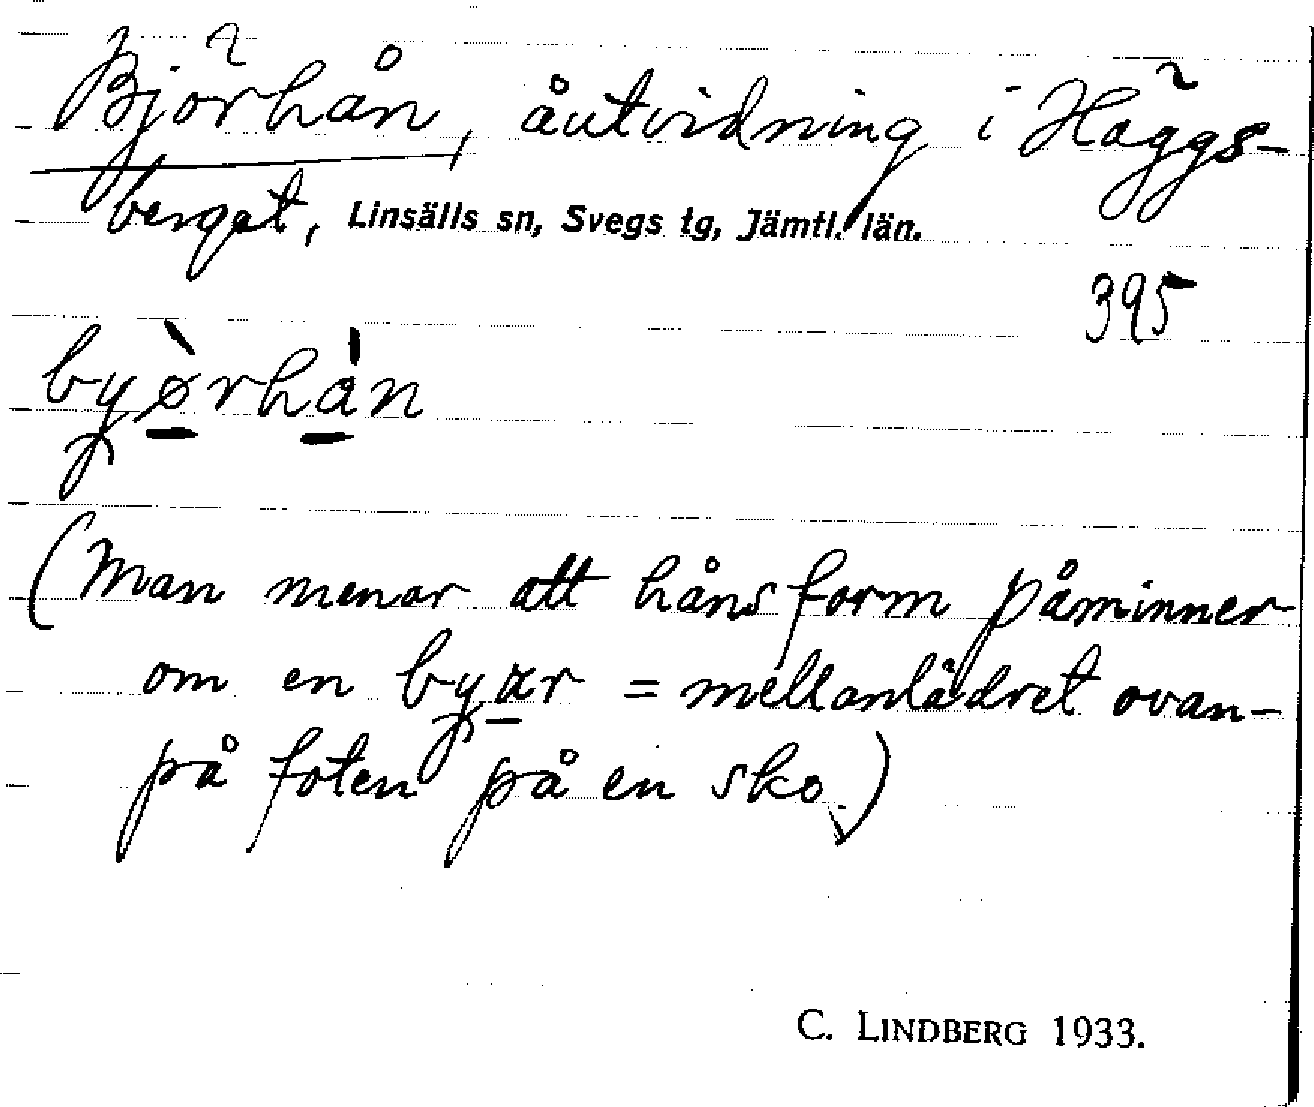 Björhån, åutvidning i Häggs-
berget, Linsälls sn, Svegs tg, Jämtl. län.
395
byø̠̀rha̠̍n
(Man menar att håns form påminner
om en byær = mellanlädret ovan-
på foten på en sko.)
C. LINDBERG 1933.